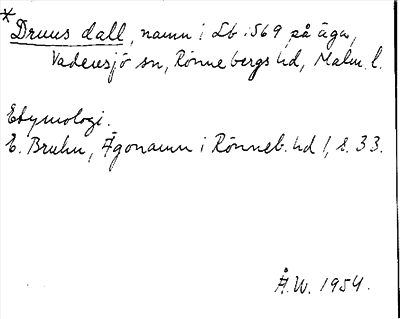 * Druus dall, namn i Lb 1569 på äga,
Vadensjö sn, Rönnebergs hd, Malm. l.
Etymologi.
E. Bruhn, Ägonamn i Rönneb. hd 1, s. 33.
Å.W. 1954.